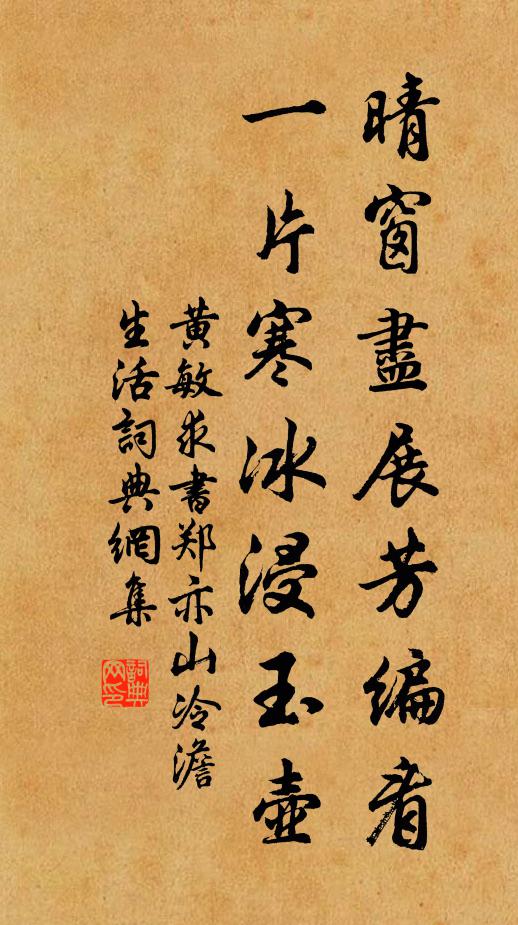 晴窗盡展芳編看
一片寒冰浸玉壺
黄敏求書郑亦山冷澹
生活詞典網集
詞典网印